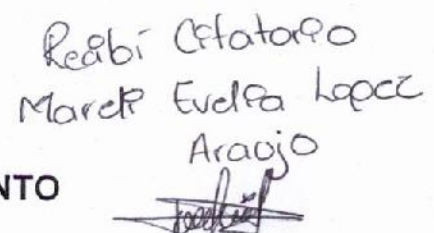 Recibí Citatorio
Mareli Evelia Lopez
Araujo
NTO